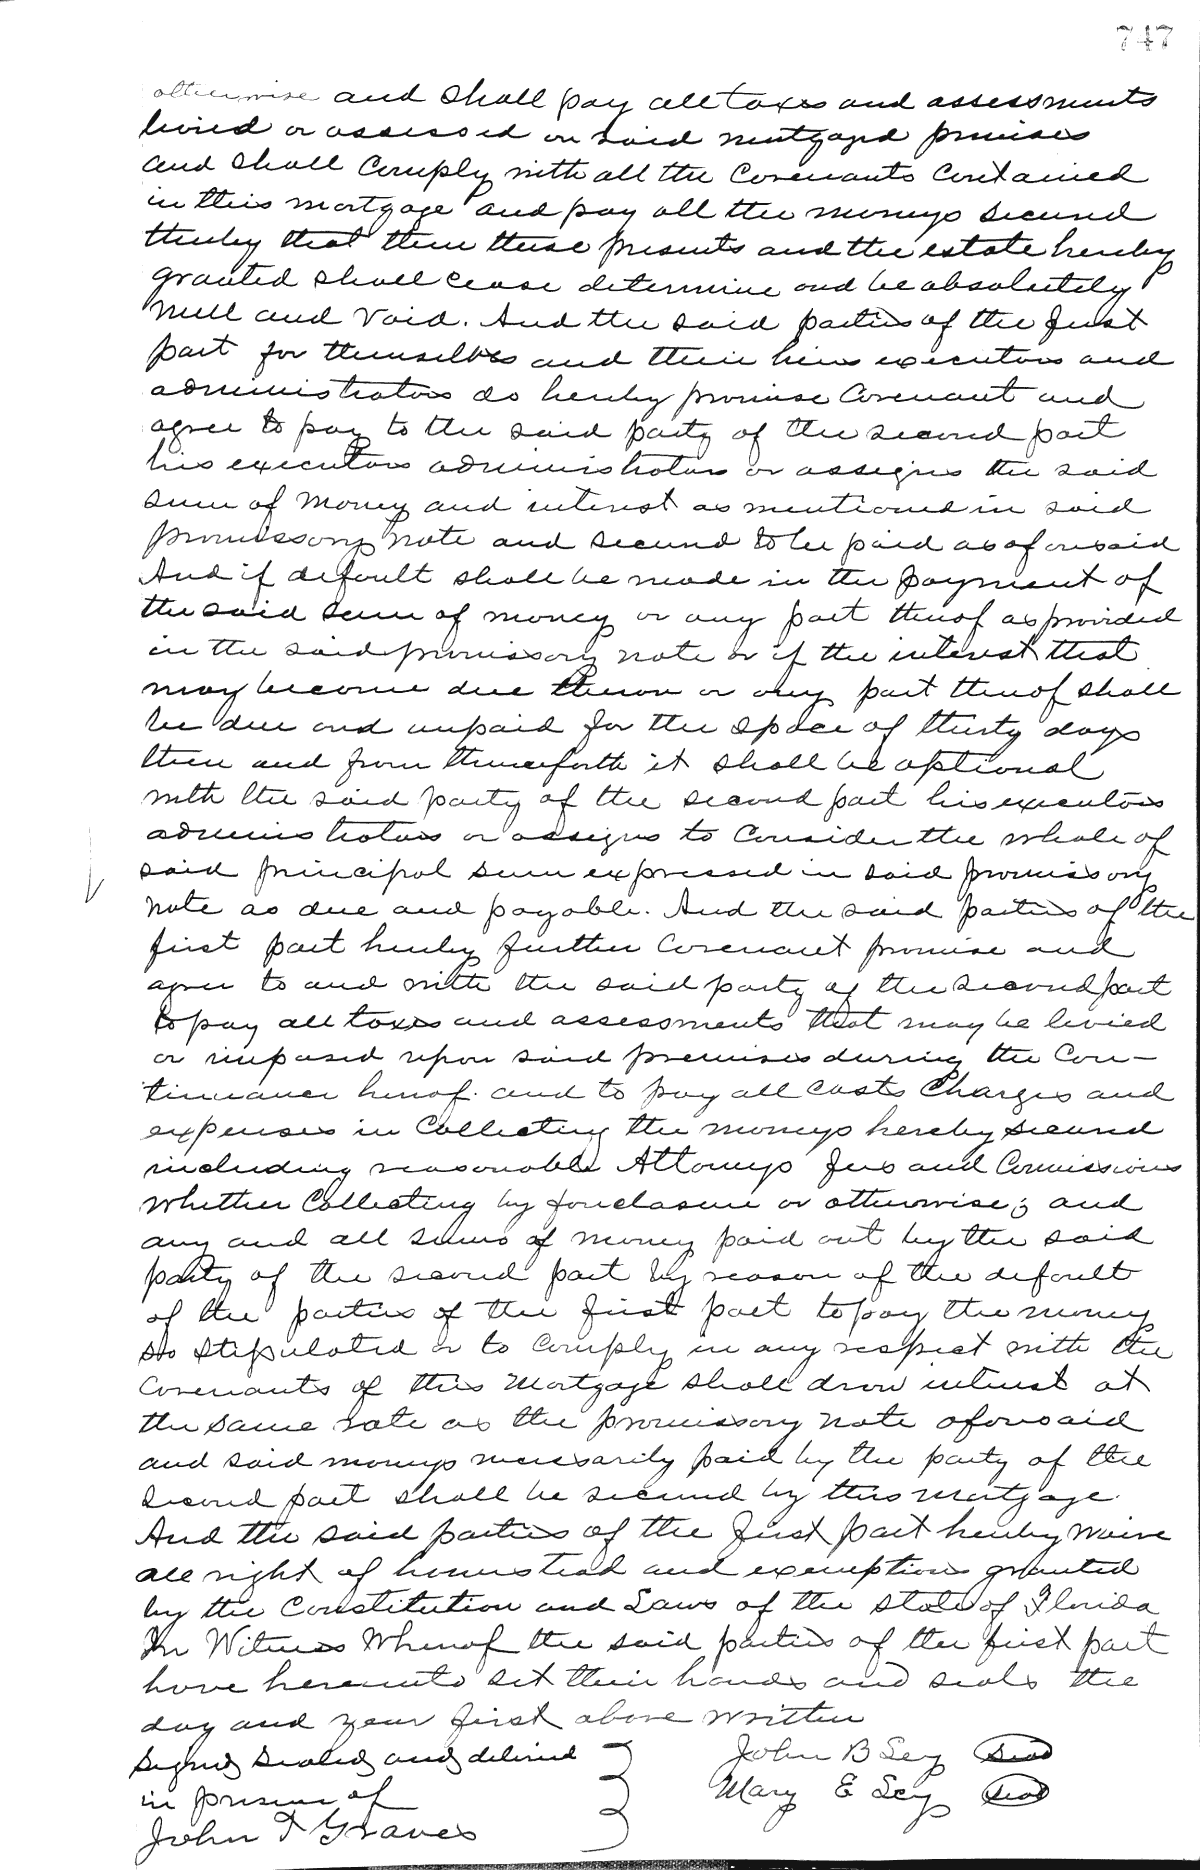 747
otherwise and shall pay all taxes and assessments
levied or assessed on said mortgaged premises
and shall Comply with all the Covenants Contained
in this mortgage and pay all the moneys secured
thereby that then these presents and the estate hereby
granted shall cease determine and be absolutely
null and void. And the said parties of the first
part for themselves and their heirs executors and
administrators do hereby promise Covenant and
agree to pay to the said party of the second part
his executors administrators or assigns the said
sum of money and interest as mentioned in said
promissory note and secured to be paid as aforesaid
And if default shall be made in the payment of
the said sum of money or any part thereof as provided
in the said promissory note or if the interest that
may become due thereon or any part thereof shall
be due and unpaid for the space of thirty days
then and from thenceforth it shall be optional
with the said party of the second part his executors
administrators or assigns to Consider the whole of
said principal sum expressed in said promissory
note as due and payable. And the said parties of the
first part hereby further Covenant promise and
agree to and with the said party of the second part
to pay all taxes and assessments that may be levied
or imposed upon said premises during the Con-
tinuance hereof. and to pay all Costs Charges and
expenses in Collecting the moneys hereby secured
including reasonable Attorneys fees and Comissions
whether Collecting by foreclosure or otherwise; and
any and all sums of money paid out by the said
party of the second part by reason of the default
of the parties of the first part to pay the money
so stipulated or to Comply in any respect with the
Covenants of this Mortgage shall draw interest at
the same rate as the promissory note aforesaid
and said moneys necessarily paid by the party of the
second part shall be secured by this mortgage.
And the said parties of the first part hereby waive
all right of homestead and exemptions granted
by the Constitution and Laws of the state of Florida
In Witness Whereof the said parties of the first part
have hereunto set their hands and seals the
day and year first above written
Signed Sealed and delivered John B Sey Seal
in presence of Mary E Sey Seal
John T Graves